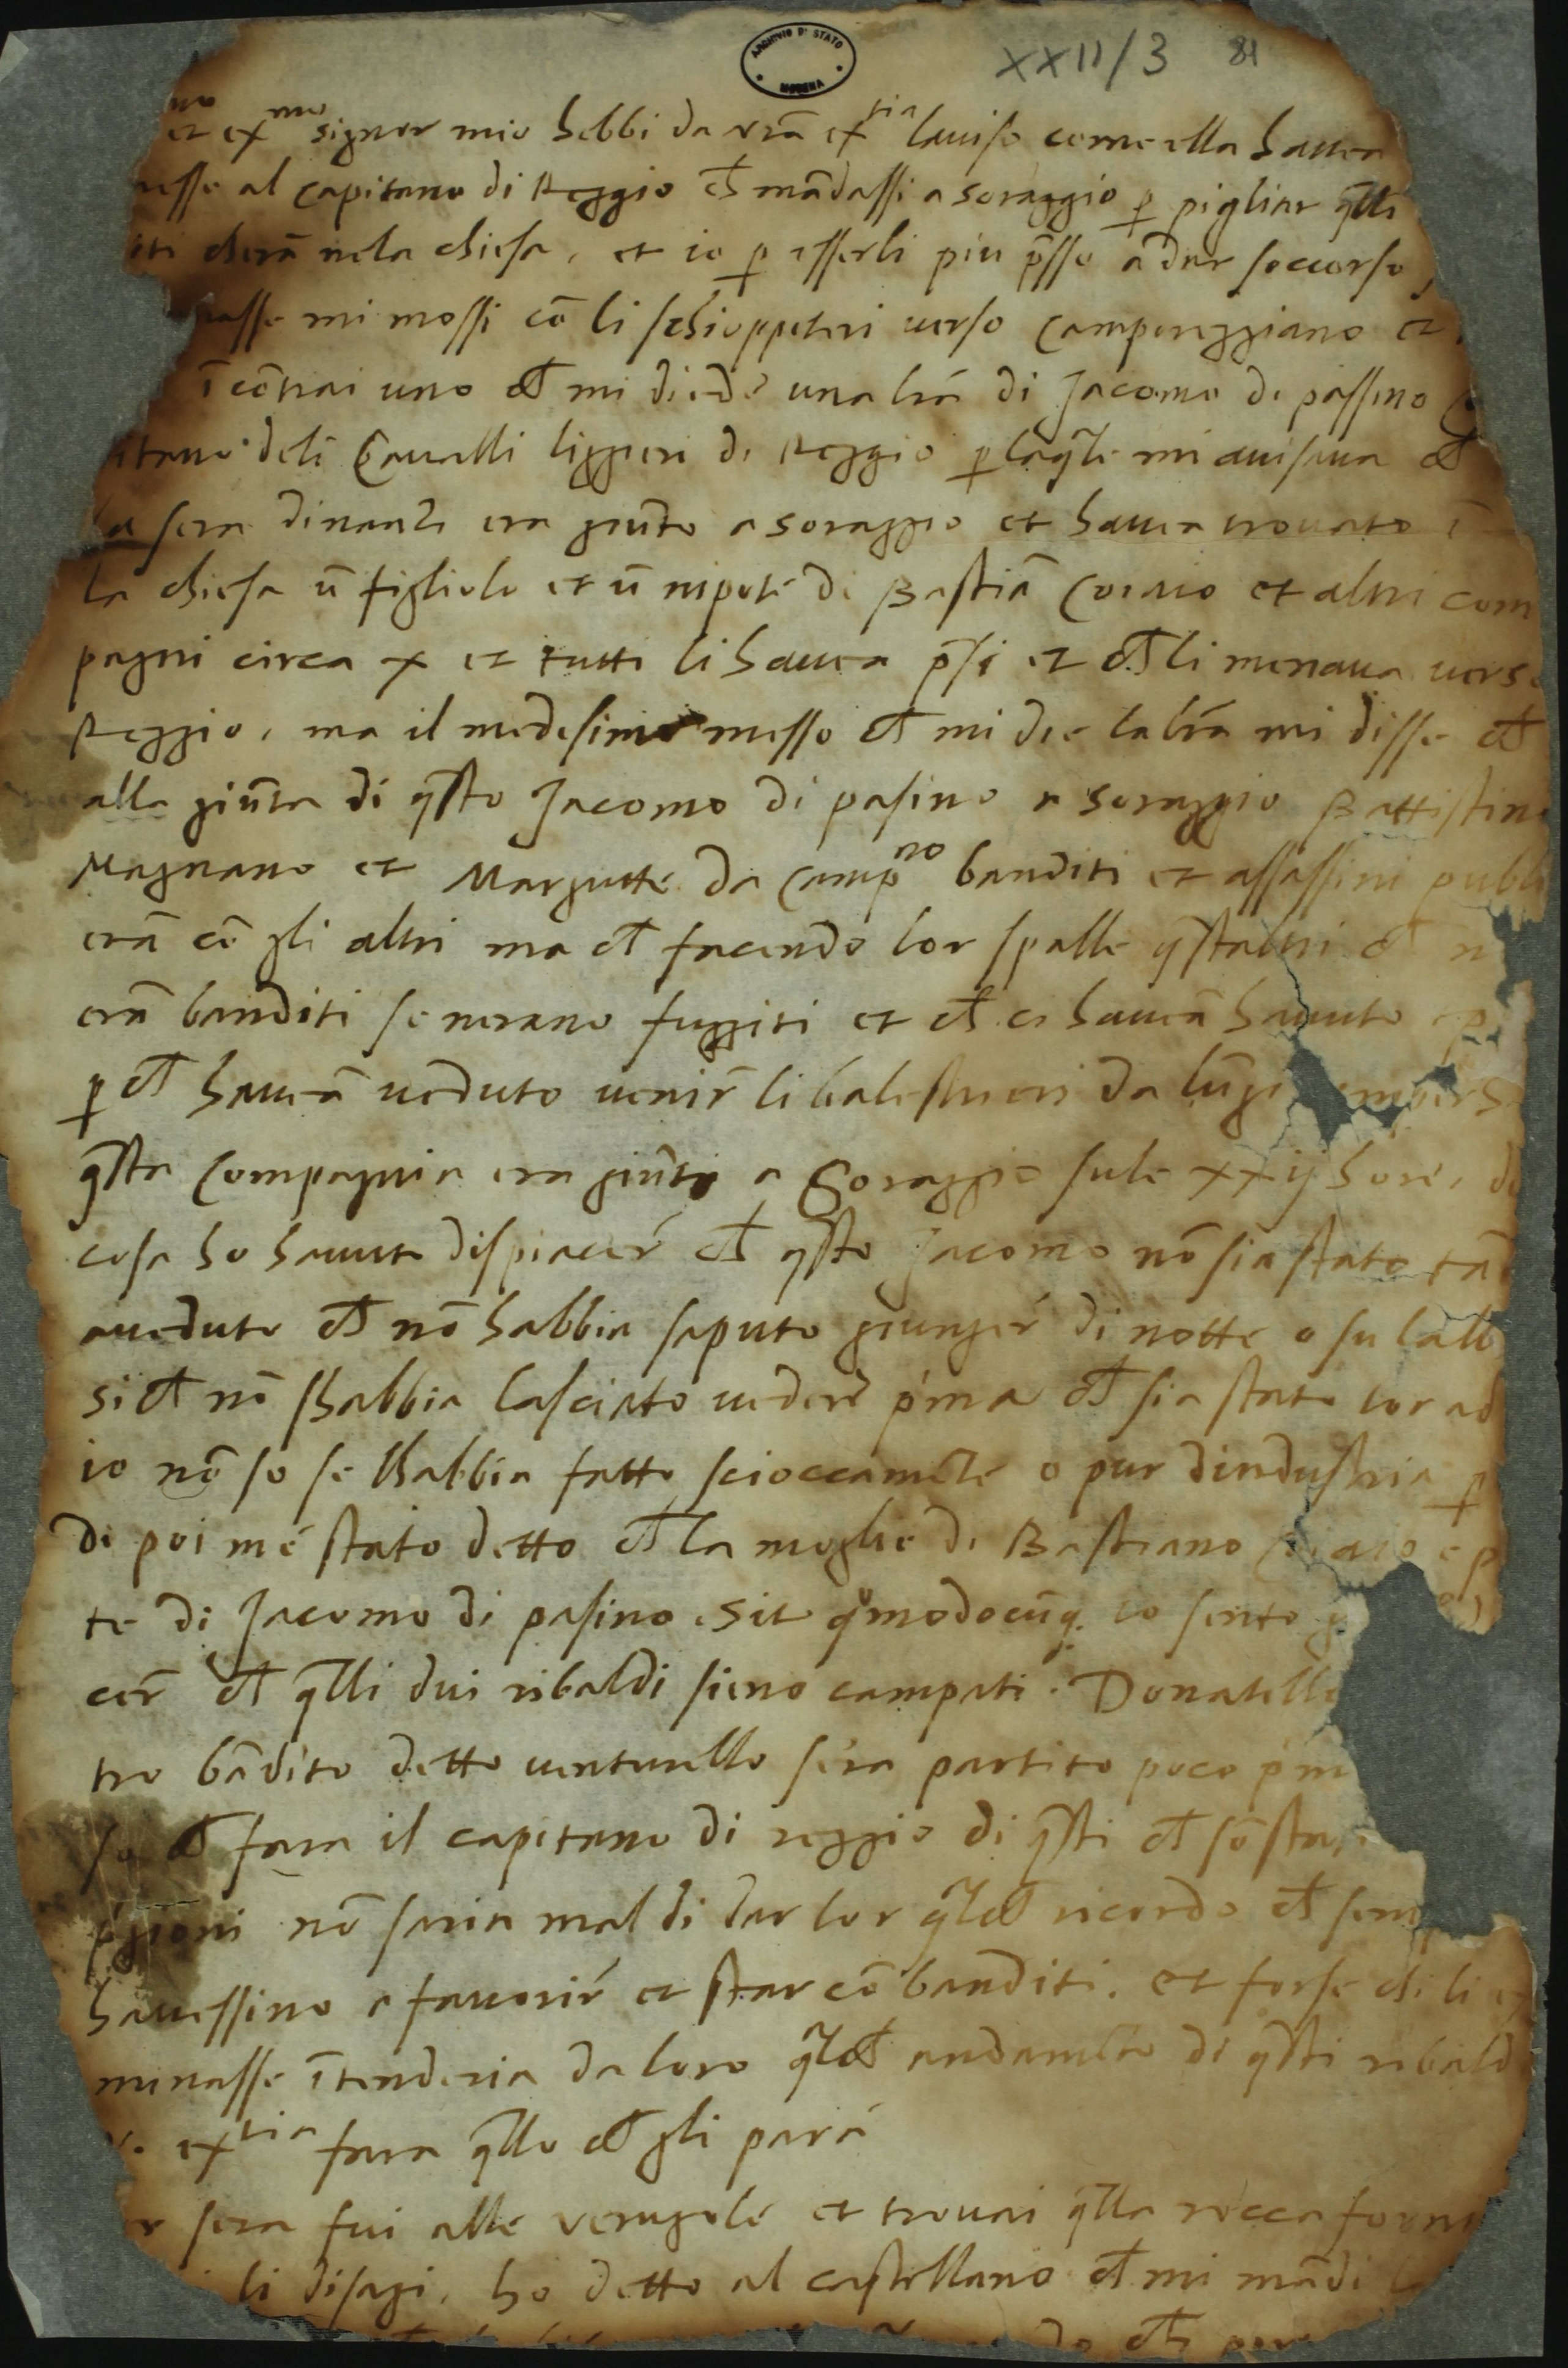 ARCHIVIO DI STATO
MODENA
XXII/3 81
et ex^mo signor mio hebbi da vrã ex^tia laviso come ella havea
messo al capitano di Reggio ch mãdassi a soraggio p pigliar q̃lli
iti cherã nela chiesa, et io p esserli piu p̃sso a dar soccorso
mi mossi cõ li schioppeteri verso camporeggiano et
ĩcõtrai uno ch mi diede una lrã di Jacomo di passino
deli Cavalli liggieri di Reggio p laq̃le mi avisava ch
la sera dinanti era giũto a soraggio et havea trovato ĩ
la chiesa ũ figliolo et ũ nipote di Bastiã Coiaio et altri com
pagni circa x et tutti li havea p̃si et ch li menava verso
Reggio, ma il medesimo messo ch mi die la lrã mi disse ch
alla giũta di q̃sto Jacomo di pasino a soraggio Battistino
Magnano et Margutte da Camp^no banditi et assassini publ
erã cõ gli altri ma ch facendo lor spalle q̃staltri ch n
erã banditi se nerano fuggiti et ch ci haveã havuto
p ch haveã veduto venir̃ li balestrieri da lũgi
q̃sta Compagnia era giũta a Soraggio sule xxij hore,
cosa ho havuto dispiacer̃ ch q̃sto Jacomo nõ sia stato tã
aveduto ch nõ habbia saputo giunger̃ di notte o su lalb
si ch nõ shabbia lasciato vedere p̃ma ch sia stato lor ad
io nõ so se lhabbia fatto scioccamẽte o pur dindustria p
di poi mé stato detto ch la moglie di Bastiano
te di Jacomo di pasino. sit quomodocũq. io sento
cer̃ ch q̃lli dui ribaldi sieno campati. Donatello
tro bãdito detto venturello sera partito poco p̃m
so ch fara il capitano di reggio di q̃sti ch sõ sta
p̃gioni nõ saria mal di dar lor q̃lch ricordo ch
havessino a favorir̃ et star cõ banditi. et forse chi li
minasse ĩtenderia da loro q̃lch andamẽto di q̃sti ribald
ex^tia fara q̃llo ch gli parã
sera fui alle verugole et trovai q̃lla rocca forni
li disagi, ho detto al castellano ch mi mãdi